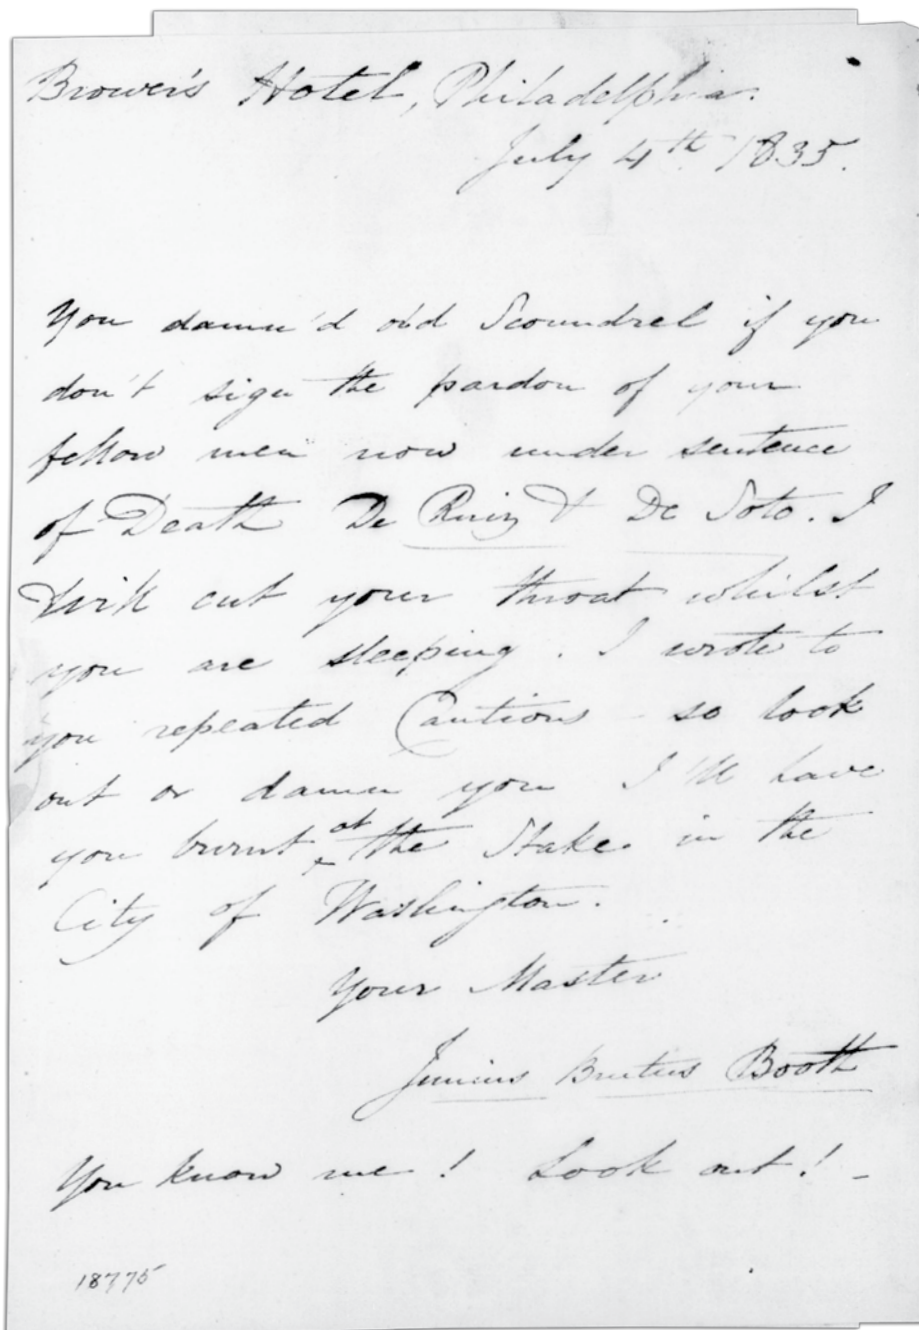 Brower's Hotel, Philadelphia.
July 4th 1835.
You damn'd old Scoundrel if you
don't sign the pardon of your
fellow men now under sentence
of Death De Ruiz & De Soto. I
will cut your throat whilst
you are sleeping. I wrote to
you repeated Cautions – so look
out or damn you I'll have
you burnt at the Stake in the
City of Washington.
Your Master
Junius Brutus Booth
You know me! Look out! –
18775